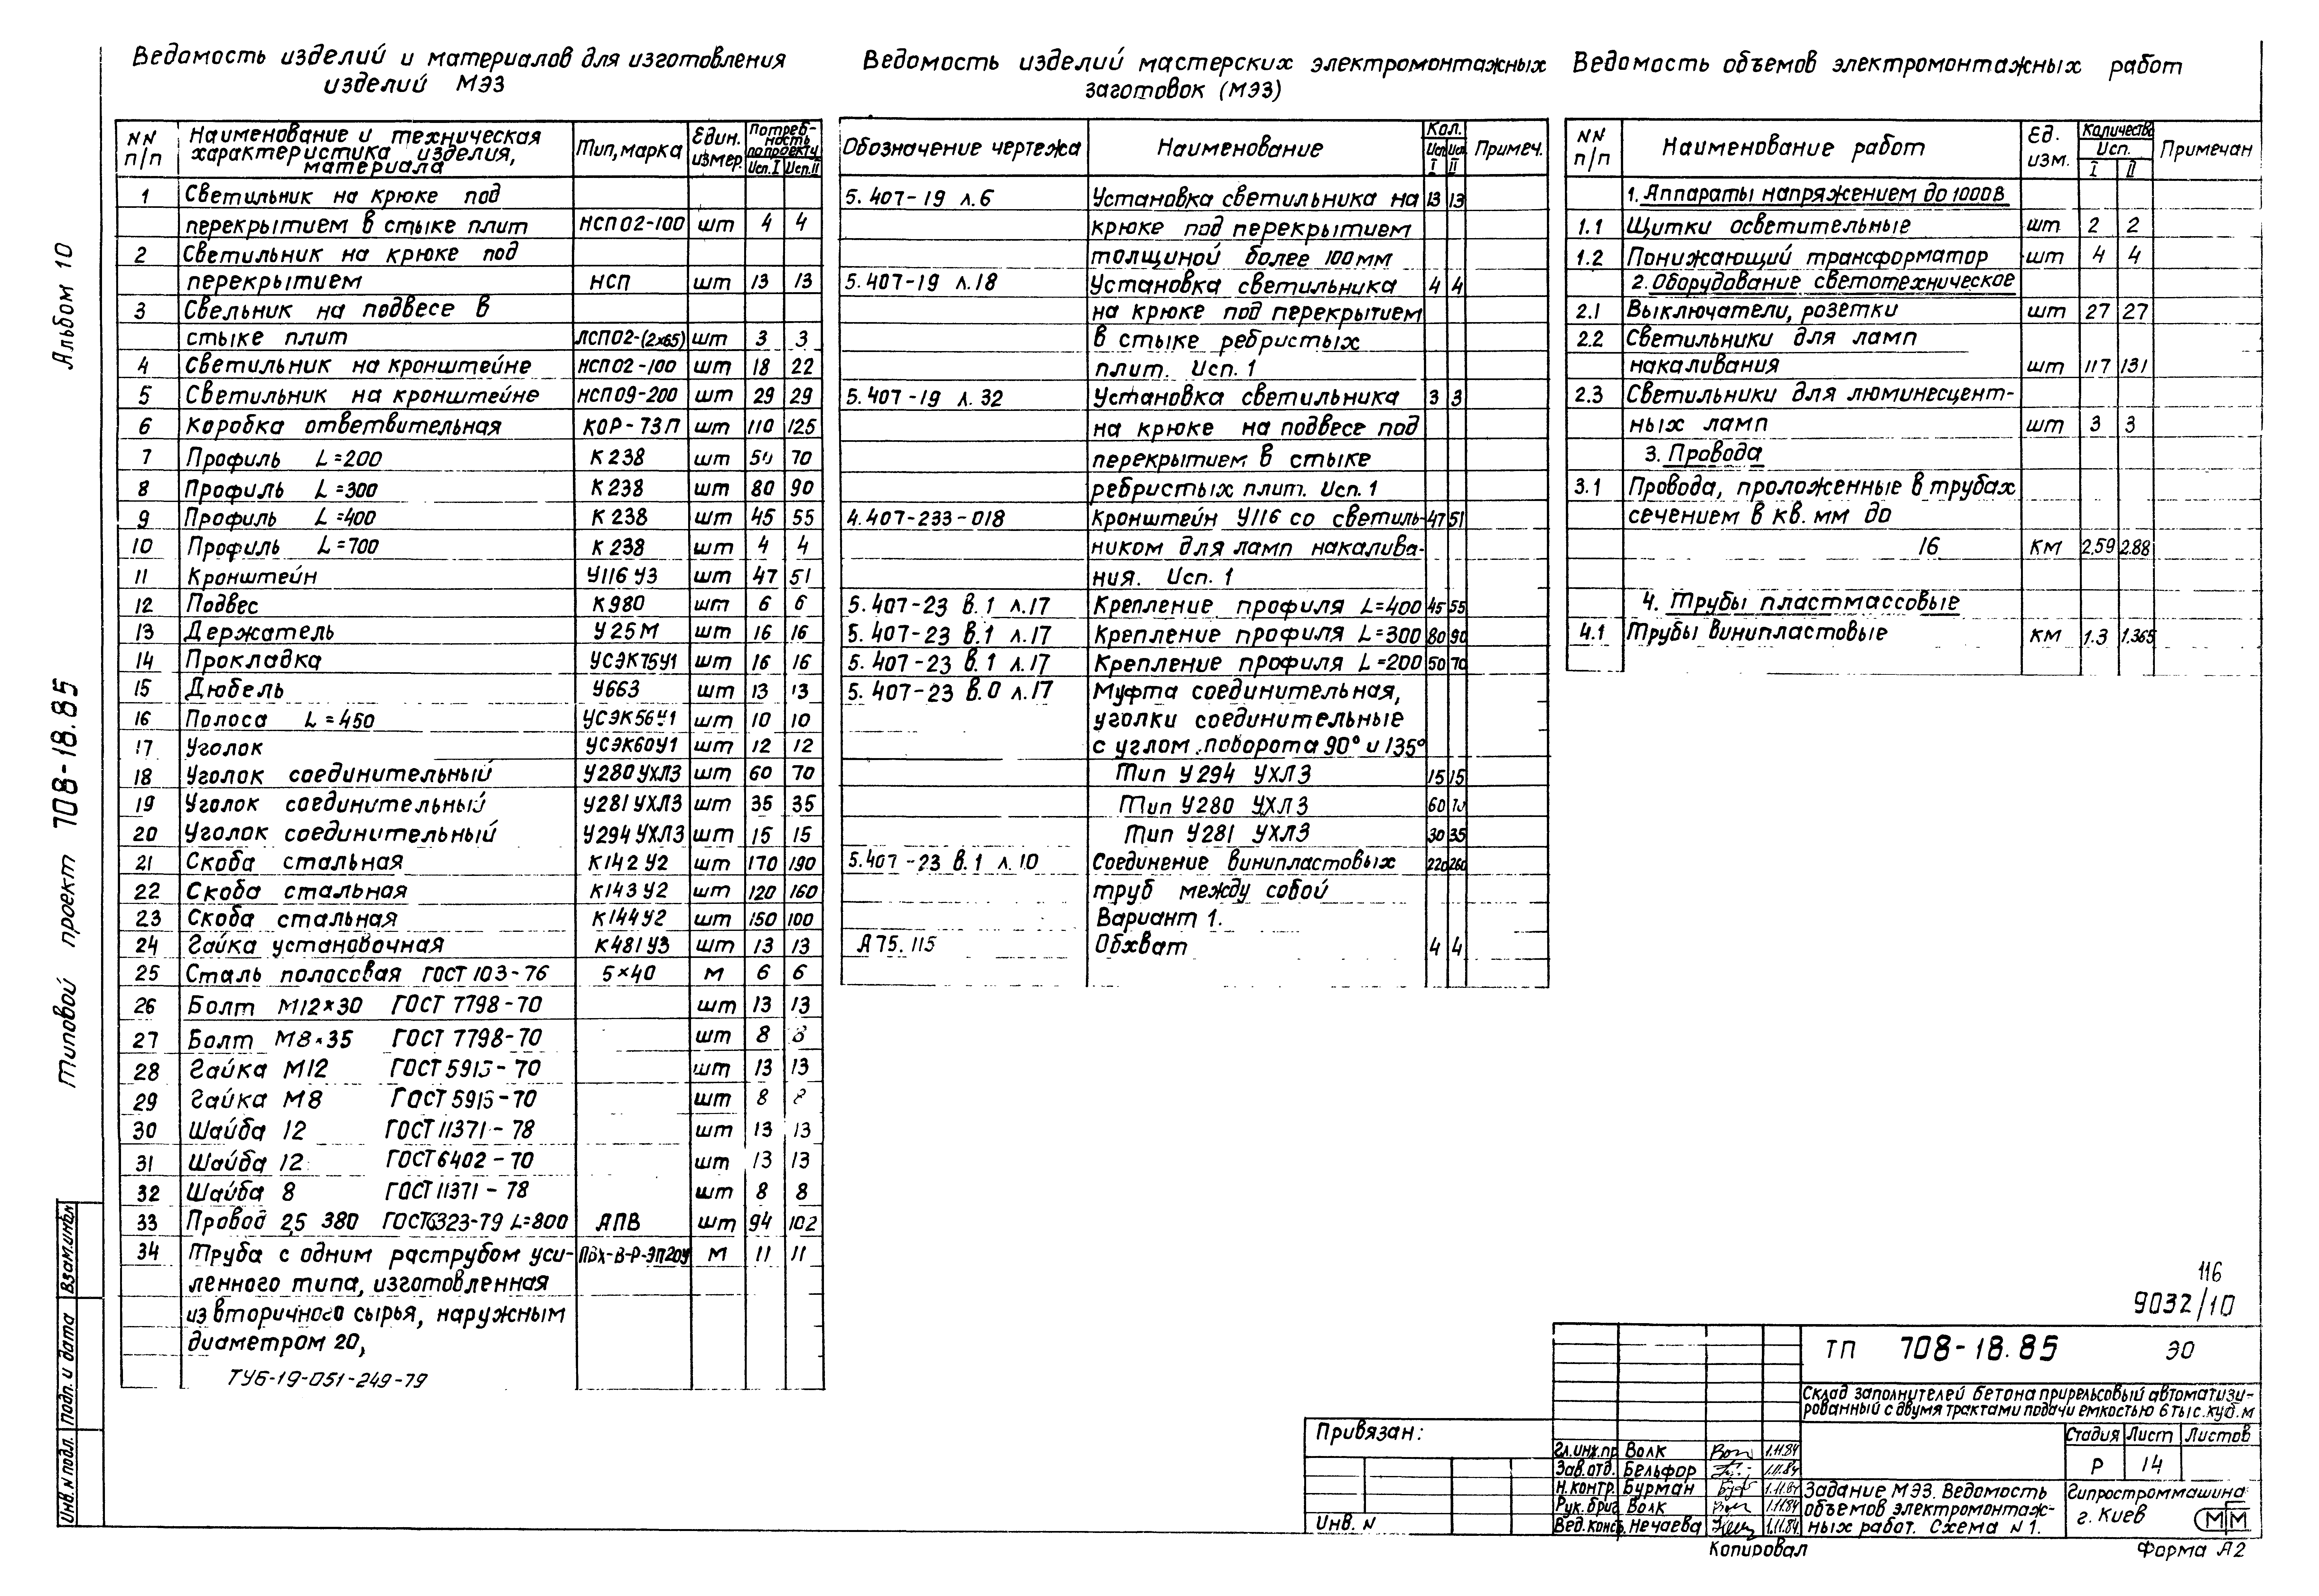 Альбом 10
Типовой проект 708-18.85
Инв. N подл. Подп. и дата Взам.инв.N
Ведомость изделий и материалов для изготовления
изделий МЭЗ
NN п/п | Наименование и техническая характеристика изделия, материала | Тип, марка | Един. измер. | Потребность по проекту Исп. I | Исп. II
1 Светильник на крюке под
перекрытием в стыке плит НСП02-100 шт 4 4
2 Светильник на крюке под
перекрытием НСП шт 13 13
3 Свельник на подвесе в
стыке плит ЛСП02-(2×65) шт 3 3
4 Светильник на кронштейне НСП02-100 шт 18 22
5 Светильник на кронштейне НСП09-200 шт 29 29
6 Коробка ответвительная КОР-73П шт 110 125
7 Профиль L=200 К238 шт 50 70
8 Профиль L=300 К238 шт 80 90
9 Профиль L=400 К238 шт 45 55
10 Профиль L=700 К238 шт 4 4
11 Кронштейн У116 У3 шт 47 51
12 Подвес К980 шт 6 6
13 Держатель У25М шт 16 16
14 Прокладка УСЭК75У1 шт 16 16
15 Дюбель У663 шт 13 13
16 Полоса L=450 УСЭК56У1 шт 10 10
17 Уголок УСЭК60У1 шт 12 12
18 Уголок соединительный У280 УХЛ3 шт 60 70
19 Уголок соединительный У281 УХЛ3 шт 35 35
20 Уголок соединительный У294 УХЛ3 шт 15 15
21 Скоба стальная К142 У2 шт 170 190
22 Скоба стальная К143 У2 шт 120 160
23 Скоба стальная К144У2 шт 150 100
24 Гайка установочная К481 У3 шт 13 13
25 Сталь полосовая ГОСТ 103-76 5×40 м 6 6
26 Болт М12×30 ГОСТ 7798-70 шт 13 13
27 Болт М8×35 ГОСТ 7798-70 шт 8 8
28 Гайка М12 ГОСТ 5915-70 шт 13 13
29 Гайка М8 ГОСТ 5915-70 шт 8 8
30 Шайба 12 ГОСТ 11371-78 шт 13 13
31 Шайба 12 ГОСТ 6402-70 шт 13 13
32 Шайба 8 ГОСТ 11371-78 шт 8 8
33 Провод 2,5 380 ГОСТ6323-79 L=800 АПВ шт 94 102
34 Труба с одним раструбом уси- ПВХ-В-Р-ЭП20У м 11 11
ленного типа, изготовленная
из вторичного сырья, наружным
диаметром 20,
ТУ6-19-051-249-79
Ведомость изделий мастерских электромонтажных
заготовок (МЭЗ)
Обозначение чертежа | Наименование | Кол. Исп I | Исп II | Примеч.
5.407-19 л.6 Установка светильника на 13 13
крюке под перекрытием
толщиной более 100мм
5.407-19 л.18 Установка светильника 4 4
на крюке под перекрытием
в стыке ребристых
плит. Исп. 1
5.407-19 л. 32 Установка светильника 3 3
на крюке на подвесе под
перекрытием в стыке
ребристых плит. Исп. 1
4.407-233-018 Кронштейн У116 со светиль- 47 51
ником для ламп накалива-
ния. Исп. 1
5.407-23 в.1 л.17 Крепление профиля L=400 45 55
5.407-23 в.1 л.17 Крепление профиля L=300 80 90
5.407-23 в.1 л.17 Крепление профиля L=200 50 70
5.407-23 в.0 л.17 Муфта соединительная,
уголки соединительные
с углом поворота 90° и 135°
Тип У294 УХЛ3 15 15
Тип У280 УХЛ3 60 70
Тип У281 УХЛ3 30 35
5.407-23 в.1 л.10 Соединение винипластовых 220 260
труб между собой
Вариант 1.
А75.115 Обхват 4 4
Ведомость объемов электромонтажных работ
NN п/п | Наименование работ | Ед. изм. | Количество Исп. I | II | Примечан
1. Аппараты напряжением до 1000В
1.1 Щитки осветительные шт 2 2
1.2 Понижающий трансформатор шт 4 4
2. Оборудование светотехническое
2.1 Выключатели, розетки шт 27 27
2.2 Светильники для ламп
накаливания шт 117 131
2.3 Светильники для люминесцент-
ных ламп шт 3 3
3. Провода
3.1 Провода, проложенные в трубах
сечением в кв. мм до
16 км 2.59 2.88
4. Трубы пластмассовые
4.1 Трубы винипластовые км 1.3 1.365
116
9032/10
ТП 708-18.85 ЭО
Склад заполнителей бетона прирельсовый автоматизи-
рованный с двумя трактами подачи емкостью 6 тыс.куб.м
Стадия Лист Листов
Р 14
Задание МЭЗ. Ведомость
объемов электромонтаж-
ных работ. Схема N 1.
Гипростроммашина
г. Киев
Привязан:
Инв. N
Гл.инж.пр Волк 1.11.84
Зав.отд. Бельфор 1.11.84
Н.контр. Бурман 1.11.84
Рук.бриг Волк 1.11.84
Вед.конст. Нечаева 1.11.84
Копировал
Форма А2